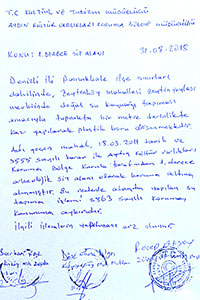 T.C KÜLTÜR VE TURİZM MÜDÜRLÜĞÜ
AYDIN KÜLTÜR VARLIKLARI KORUMA BÖLGE MÜDÜRLÜĞÜ
KONU: 1. DERECE SİT ALANI 31.08.2018
Denizli ili Pamukkale ilçe sınırları
dahilinde, Zeytinköy Mahallesi Zeytin yaylası
mevkiinde doğal su kaynağı taşınması
amacıyla toprakta bir metre derinlikte
kazı yapılarak plastik boru döşenmektedir.
Adı geçen mahal, 18.03.2011 tarih ve
sayılı karar ile Aydın Kültür Varlıkları
Koruma Bölge Kurulu tarafından 1. derece
arkeolojik sit alanı olarak koruma altına
alınmıştır. Bu nedenle alanda yapılan su
taşıma işlemi 2863 sayılı Koruma
Kanununa aykırıdır.
Gereği işlemlerin yapılması arz olunur.